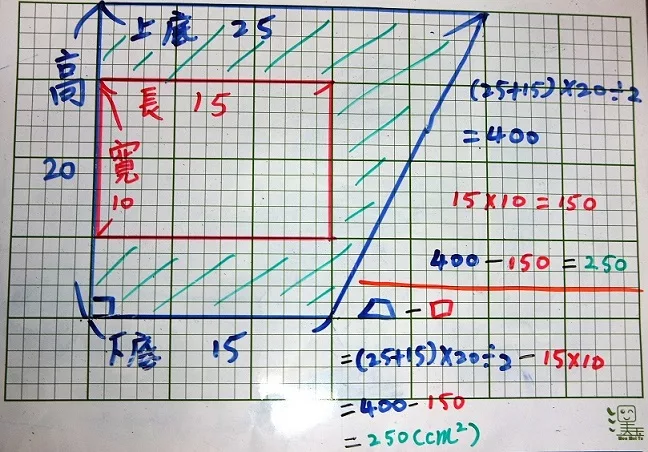 上底 25
高
20
長 15
寬
10
下底 15
(25+15)×20÷2
=400
15×10=150
400-150=250
-
=(25+15)×20÷2-15×10
=400-150
=250(cm²)